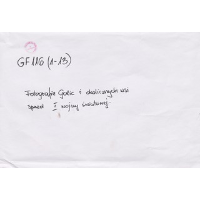 GF 116 (1-13)
Fotografie Gorlic i okolicznych wsi
sprzed I wojny światowej